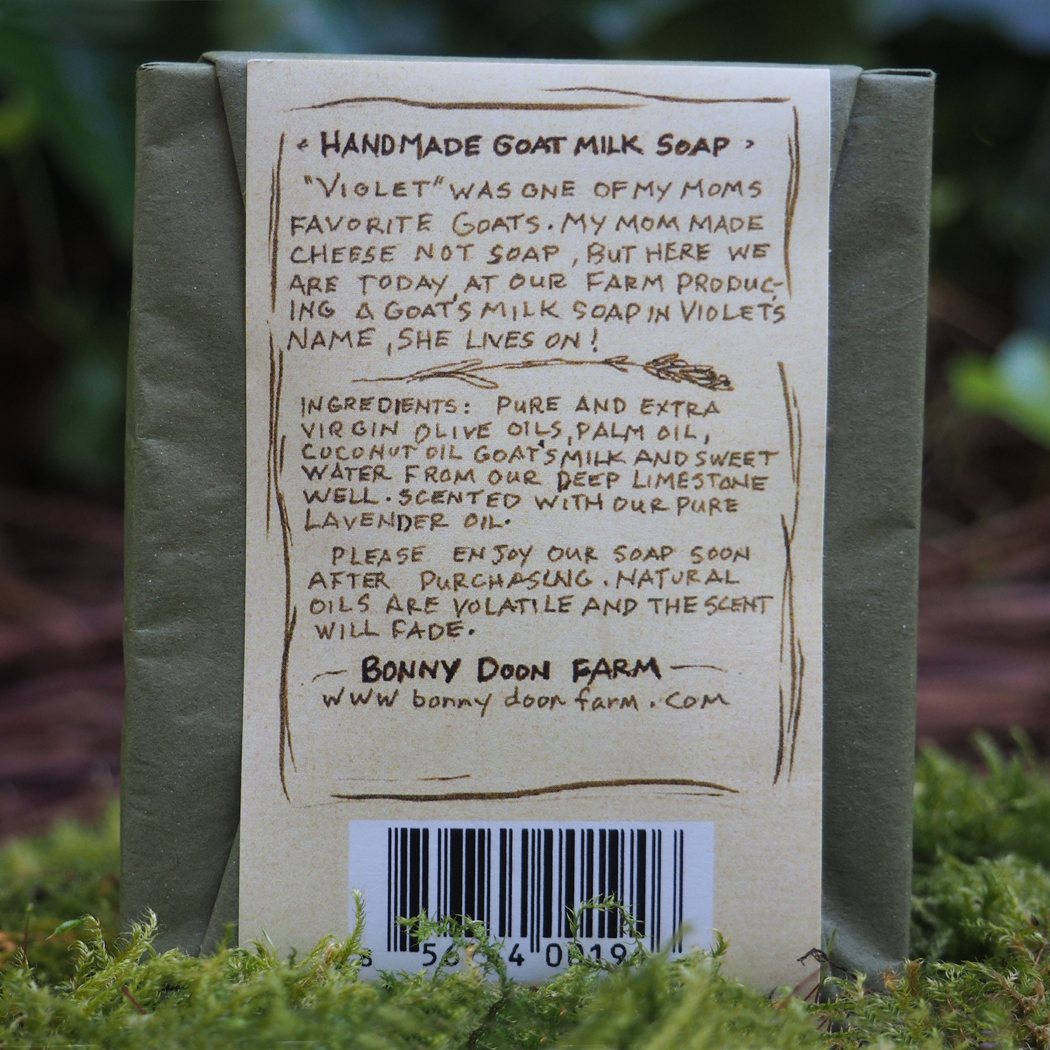 ‹ HANDMADE GOAT MILK SOAP ›
"VIOLET" WAS ONE OF MY MOMS
FAVORITE GOATS. MY MOM MADE
CHEESE NOT SOAP, BUT HERE WE
ARE TODAY, AT OUR FARM PRODUC-
ING A GOAT'S MILK SOAP IN VIOLET'S
NAME, SHE LIVES ON!
INGREDIENTS: PURE AND EXTRA
VIRGIN OLIVE OILS, PALM OIL,
COCONUT OIL GOAT'S MILK AND SWEET
WATER FROM OUR DEEP LIMESTONE
WELL. SCENTED WITH OUR PURE
LAVENDER OIL.
PLEASE ENJOY OUR SOAP SOON
AFTER PURCHASING. NATURAL
OILS ARE VOLATILE AND THE SCENT
WILL FADE.
— BONNY DOON FARM —
www bonny doon farm . com